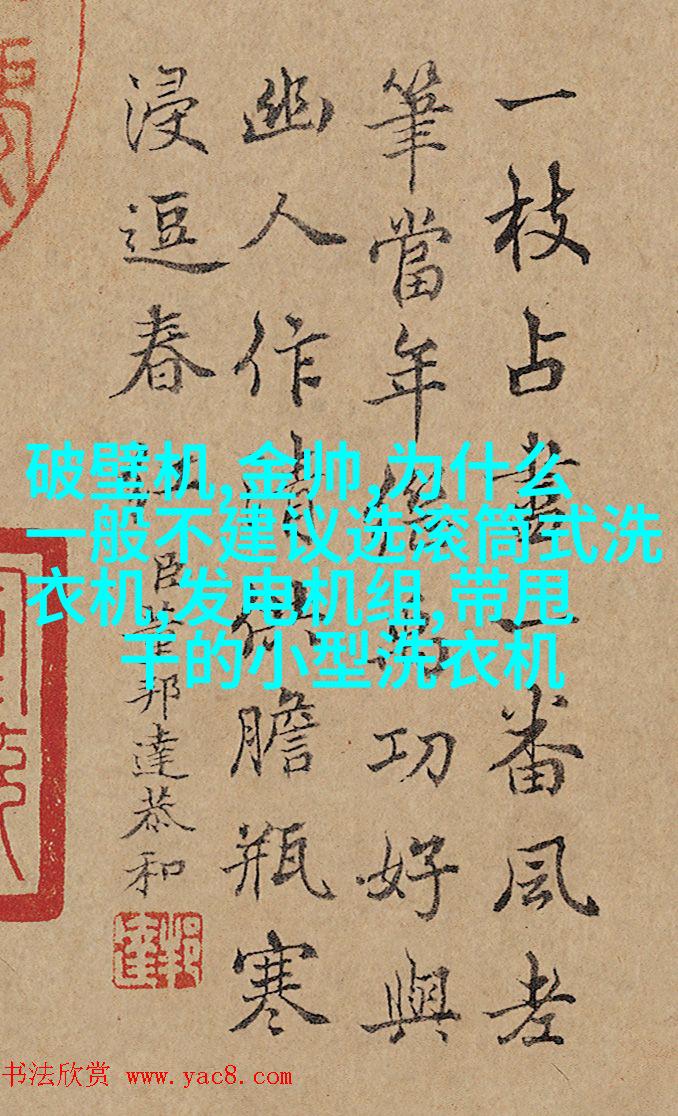 一枝占盡一番風老
筆當年功好與
幽人作清供膽瓶寒
浸逗春
臣董邦達恭和
邦達
破壁机,金帅,为什么
一般不建议选滚筒式洗
衣机,发电机组,带甩
干的小型洗衣机
书法欣赏 www.yac8.com